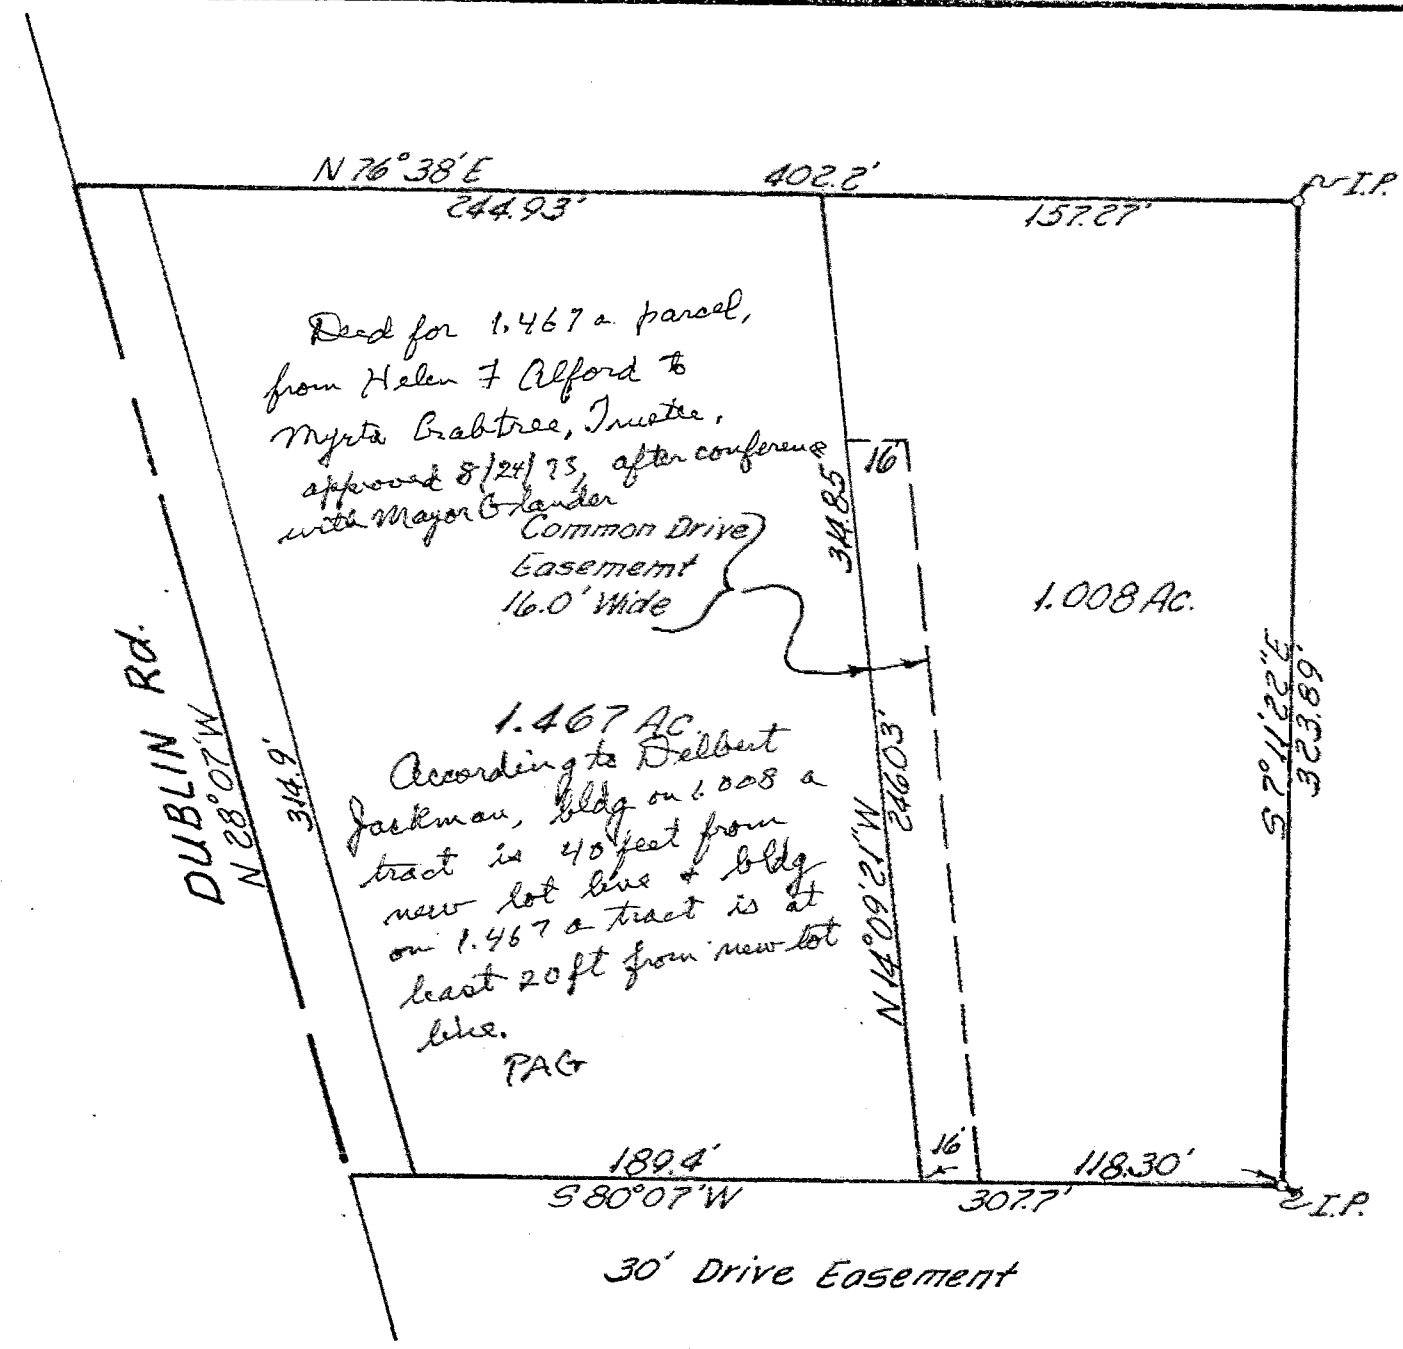 N 76°38'E
402.2'
I.P.
244.93'
157.27'
Deed for 1.467 a parcel,
from Helen F Alford to
Myrta Crabtree, Trustee,
approved 8/24/73, after conference
with Mayor Glander
16'
314.85'
Common Drive
Easememt
16.0' Wide
1.008 Ac.
DUBLIN Rd.
N 28°07'W
314.9'
1.467 Ac.
According to Delbert
Jackman, bldg on 1.008 a
tract is 40 feet from
new lot line & bldg
on 1.467 a tract is at
least 20 ft from new lot
line.
PAG
N 14°09'21"W
246.03'
S 7°11'22"E
323.89'
189.4'
16'
118.30'
S 80°07'W
307.7'
I.P.
30' Drive Easement